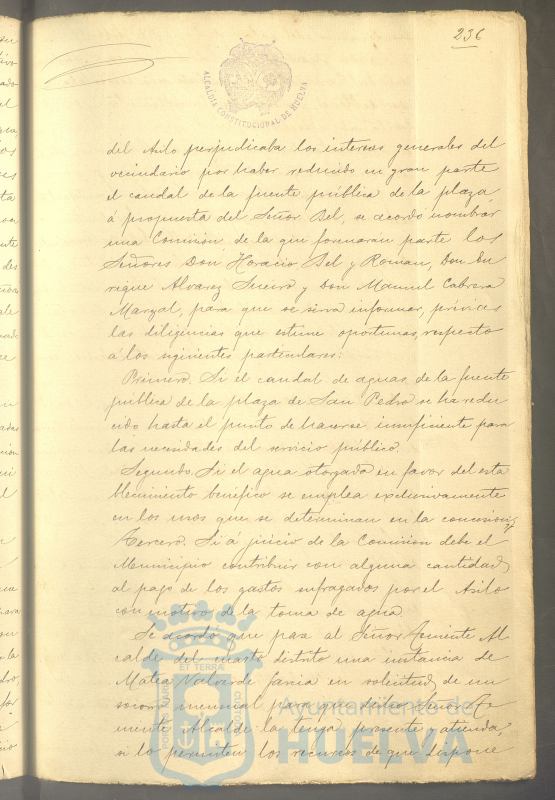 236
ALCALDIA CONSTITUCIONAL DE HUELVA
del Asilo perjudicaba los intereses generales del
vecindario por haber reducido en gran parte
el caudal de la fuente pública de la plaza
á propuesta del Señor Bel, se acordó nombrar
una Comision, de la que formarán parte los
Señores Don Horacio Bel y Roman, Don En
rique Alvarez y Don Manuel Cabrera
para que se sirva informar, prévias
las diligencias que estime oportunas, respecto
á los siguientes particulares:
Primero. Si el caudal de aguas, de la fuente
pública de la plaza de San Pedro se ha redu
cido hasta el punto de hacerse insuficiente para
las necesidades del servicio público.
Segundo. Si el agua otorgada en favor del esta
blecimiento benefico se emplea exclusivamente
en los usos que se determinan en la concesion, y
Tercero. Si á juicio de la Comision debe el
Municipio contribuir con alguna cantidad,
al pago de los gastos sufragados por el Asilo
con motivo de la toma de agua.
Se acordó que pase al Señor Teniente Al
calde del cuarto distrito una instancia de
Matea Valverde Garcia en solicitud de un
socorro mensual para que dicho Señor Te
niente Alcalde la tenga presente y atienda,
si lo permiten los recursos de que dispone
PORTUS MARIS ET TERRAE CUSTODIO
Ayuntamiento de
HUELVA